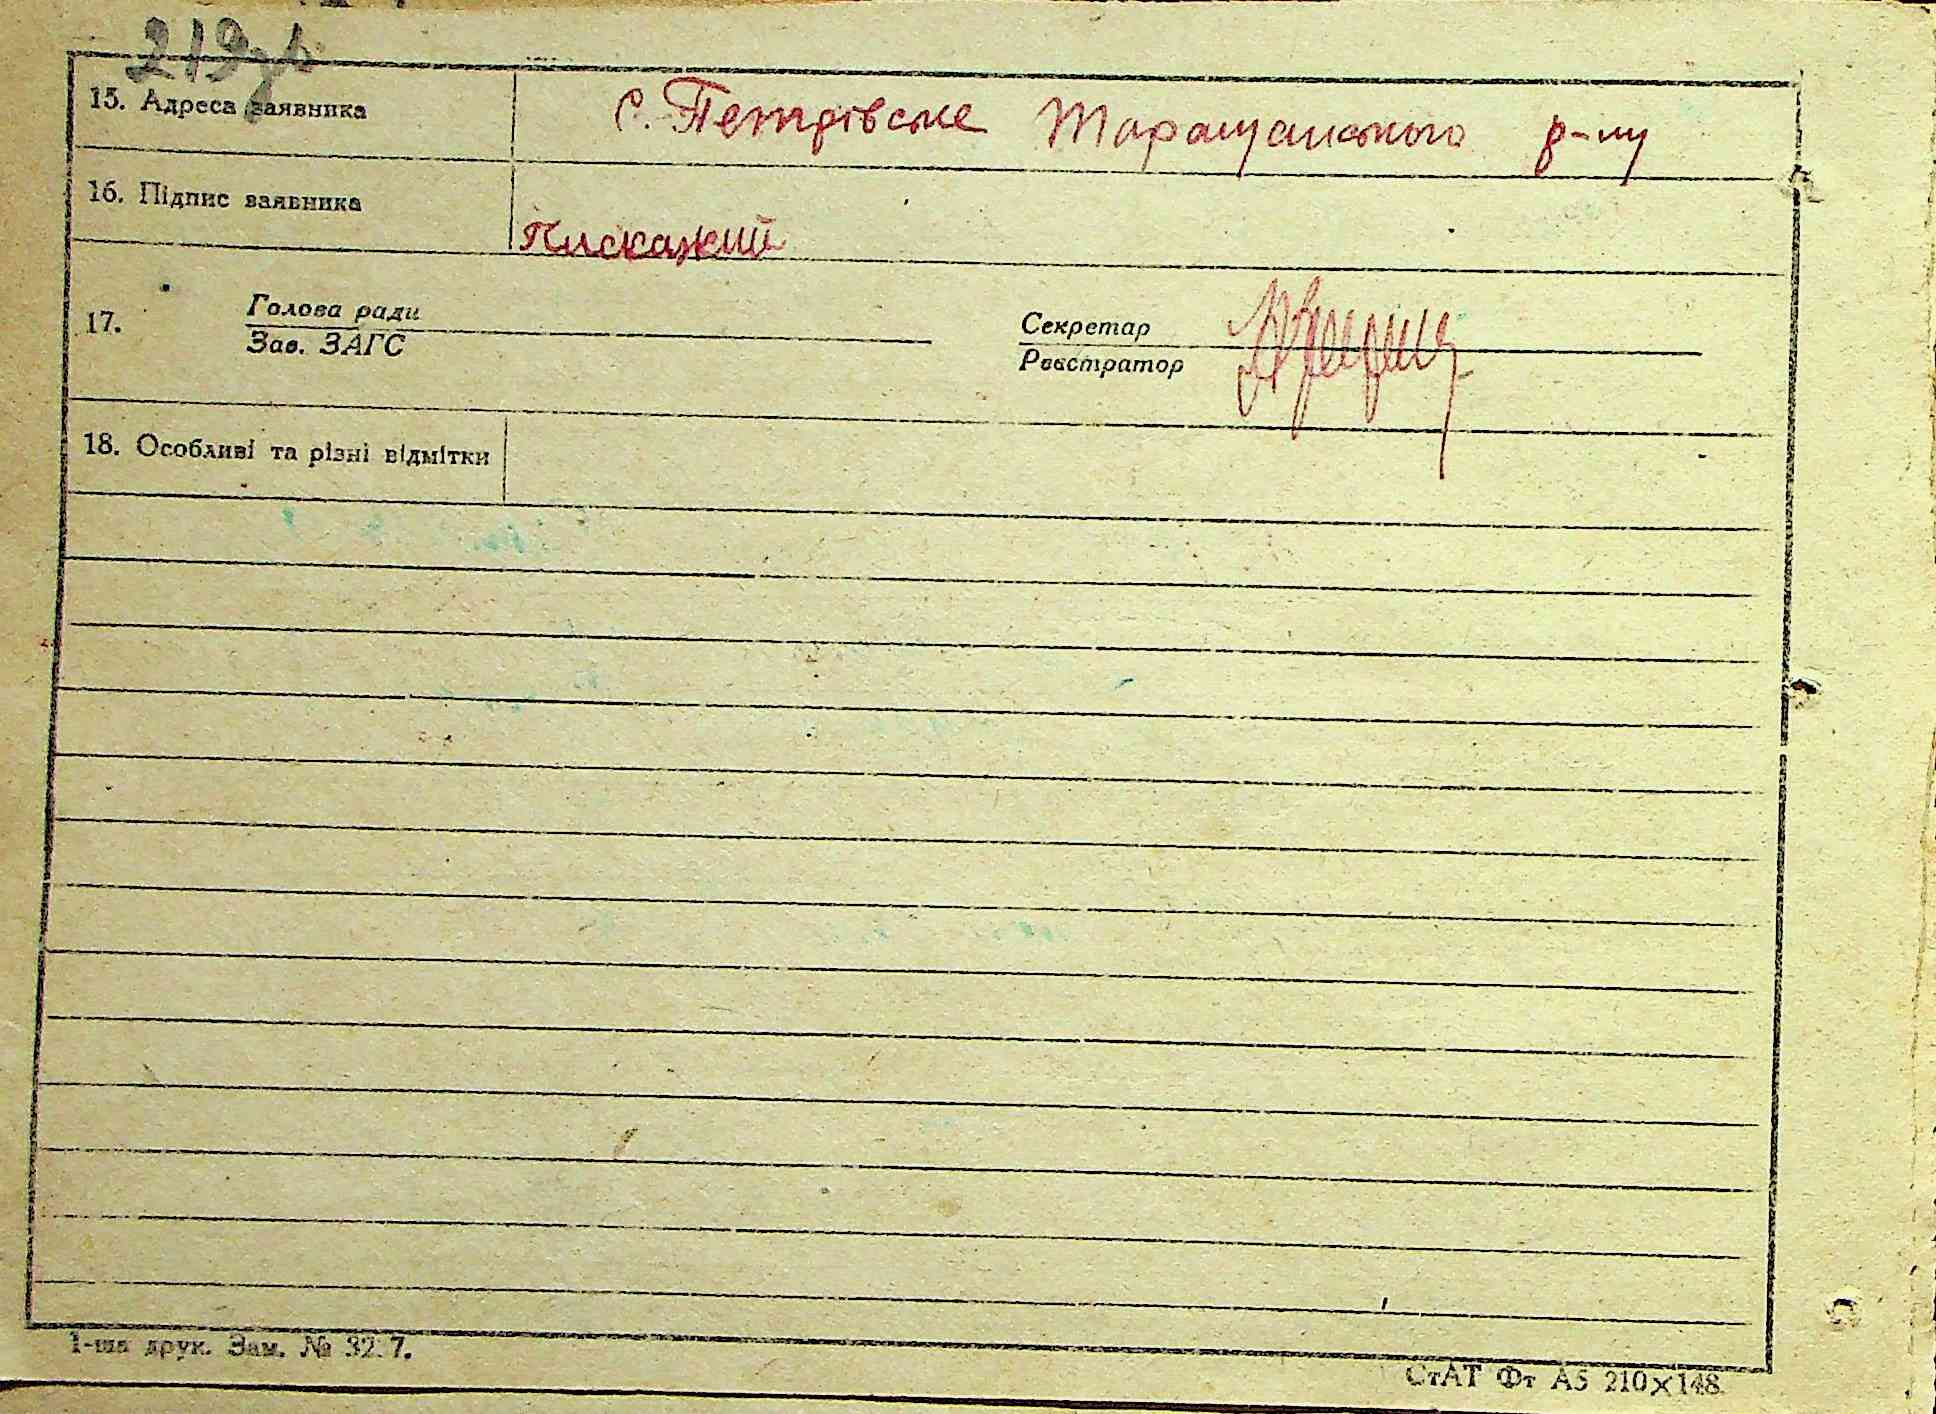 219зв
15. Адреса заявника с. Петрівське Таращанського р-ну
16. Підпис заявника Пискажий
17. Голова ради
Зав. ЗАГС
Секретар
Реєстратор
18. Особливі та різні відмітки
1-ша друк. Зам. № 3217.
СтАТ Фт А5 210×148